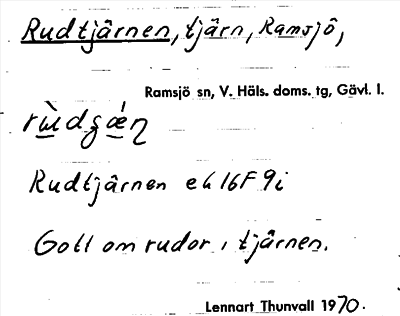 Rudtjärnen, tjärn, Ramsjö,
Ramsjö sn, V. Häls. doms. tg, Gävl. l.
Rudtjärnen ek 16F 9i
Gott om rudor i tjärnen.
Lennart Thunvall 1970.